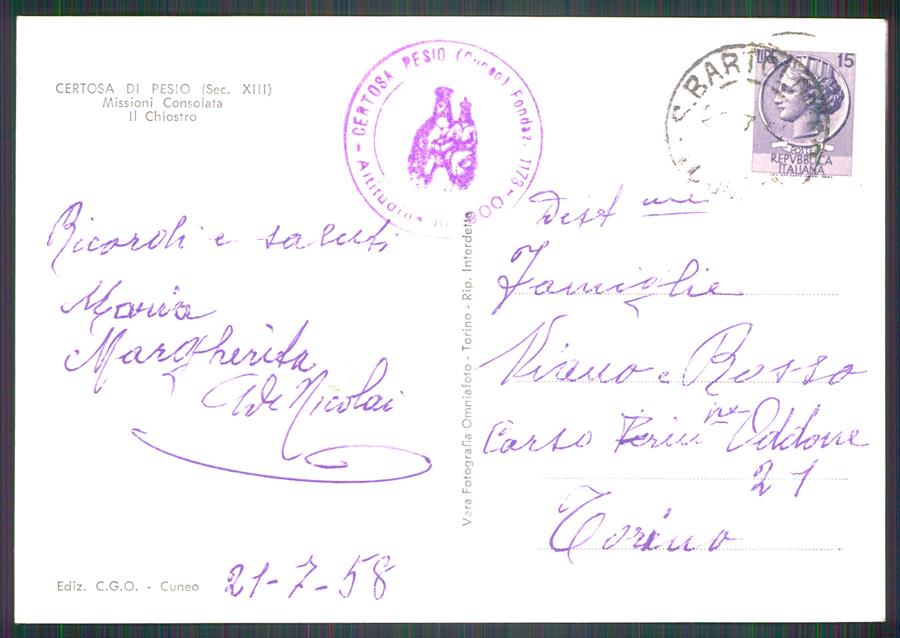 CERTOSA DI PESIO (Sec. XIII)
Missioni Consolata
Il Chiostro
- CERTOSA PESIO (Cuneo) Fondaz. 1173 -
Altitudine m.
LIRE 15
POSTE
REPVBBLICA
ITALIANA
Ricordi e saluti
Maria
Margherita
De Nicolai
21-7-58
Ediz. C.G.O. - Cuneo
Vera Fotografia Omniafoto - Torino - Rip. Interdetta
Dist me
Famiglie
Viano e Rosso
Corso Oddone
21
Torino